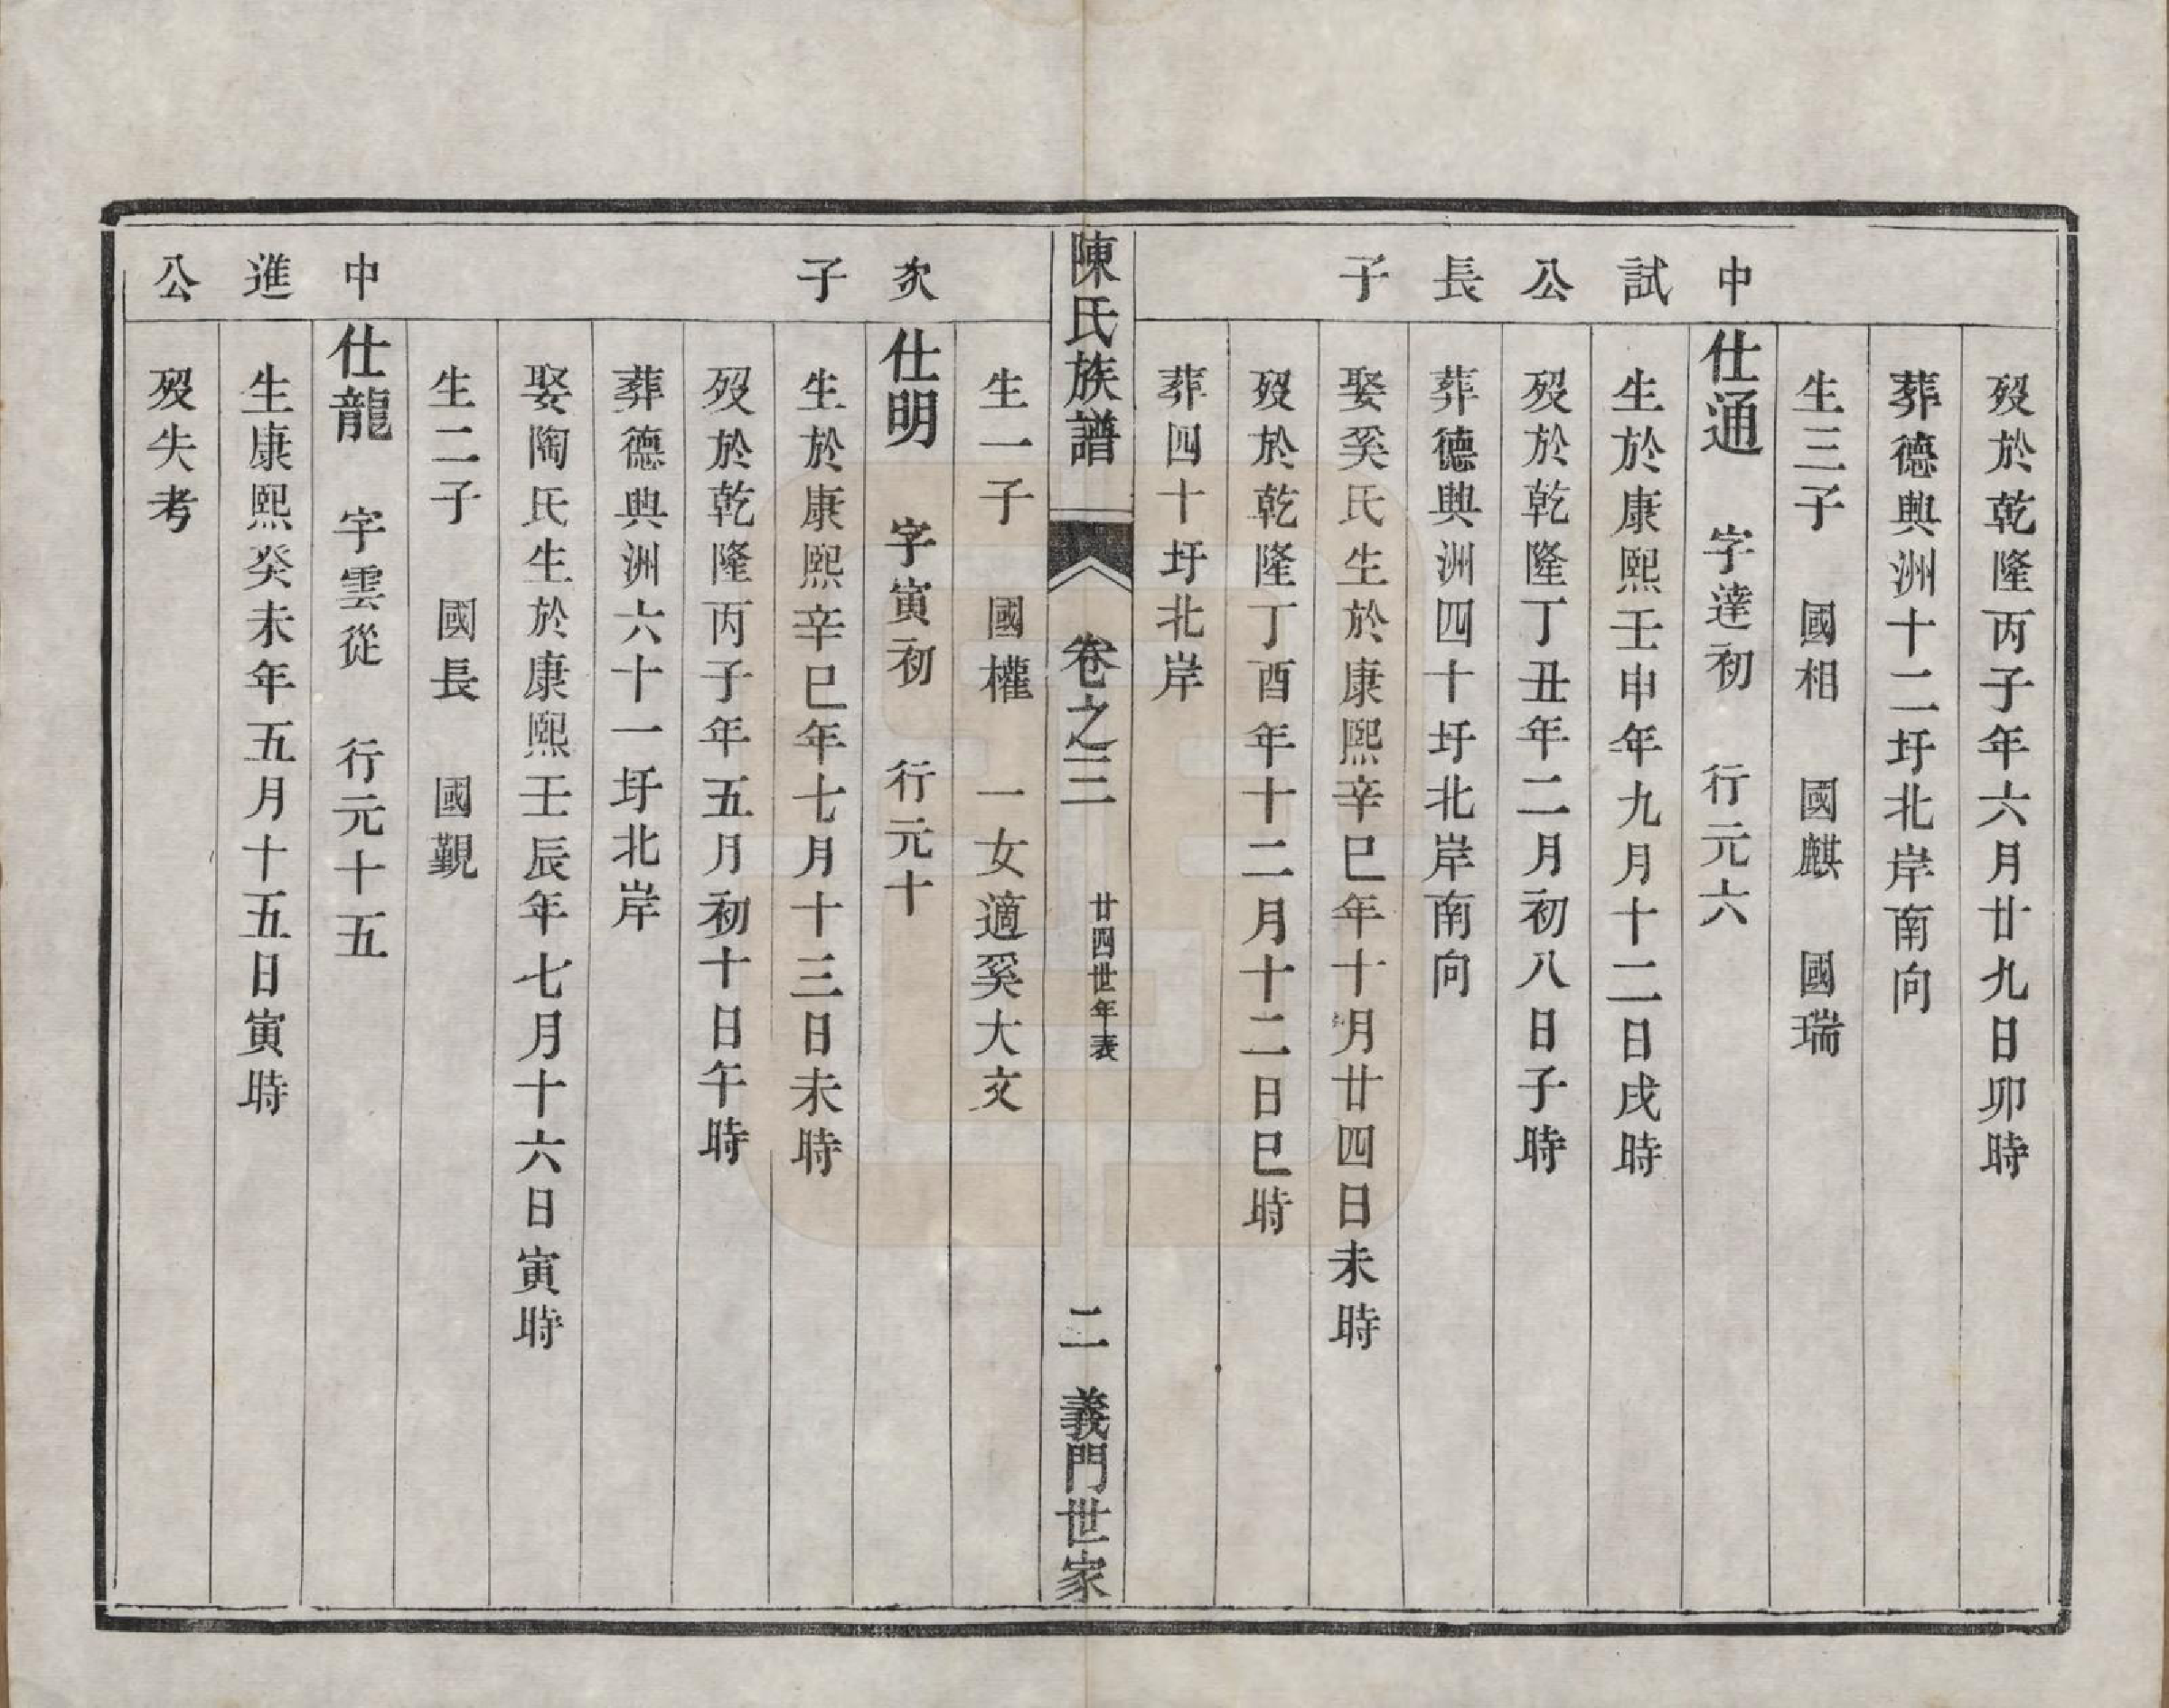 歿於乾隆丙子年六月廿九日卯時
葬德興洲十二圩北岸南向
生三子　國相　國麒　國瑞
中試公長子
仕通　字達初　行元六
生於康熙壬申年九月十二日戌時
歿於乾隆丁丑年二月初八日子時
葬德興洲四十圩北岸南向
娶奚氏生於康熙辛巳年十月廿四日未時
歿於乾隆丁酉年十二月十二日巳時
葬四十圩北岸
陳氏族譜　卷之三　廿四世年表　二　義門世家
生一子　國權　一女適奚大文
次子
仕明　字寅初　行元十
生於康熙辛巳年七月十三日未時
歿於乾隆丙子年五月初十日午時
葬德興洲六十一圩北岸
娶陶氏生於康熙壬辰年七月十六日寅時
生二子　國長　國覲
中進公
仕龍　字雲從　行元十五
生康熙癸未年五月十五日寅時
歿失考